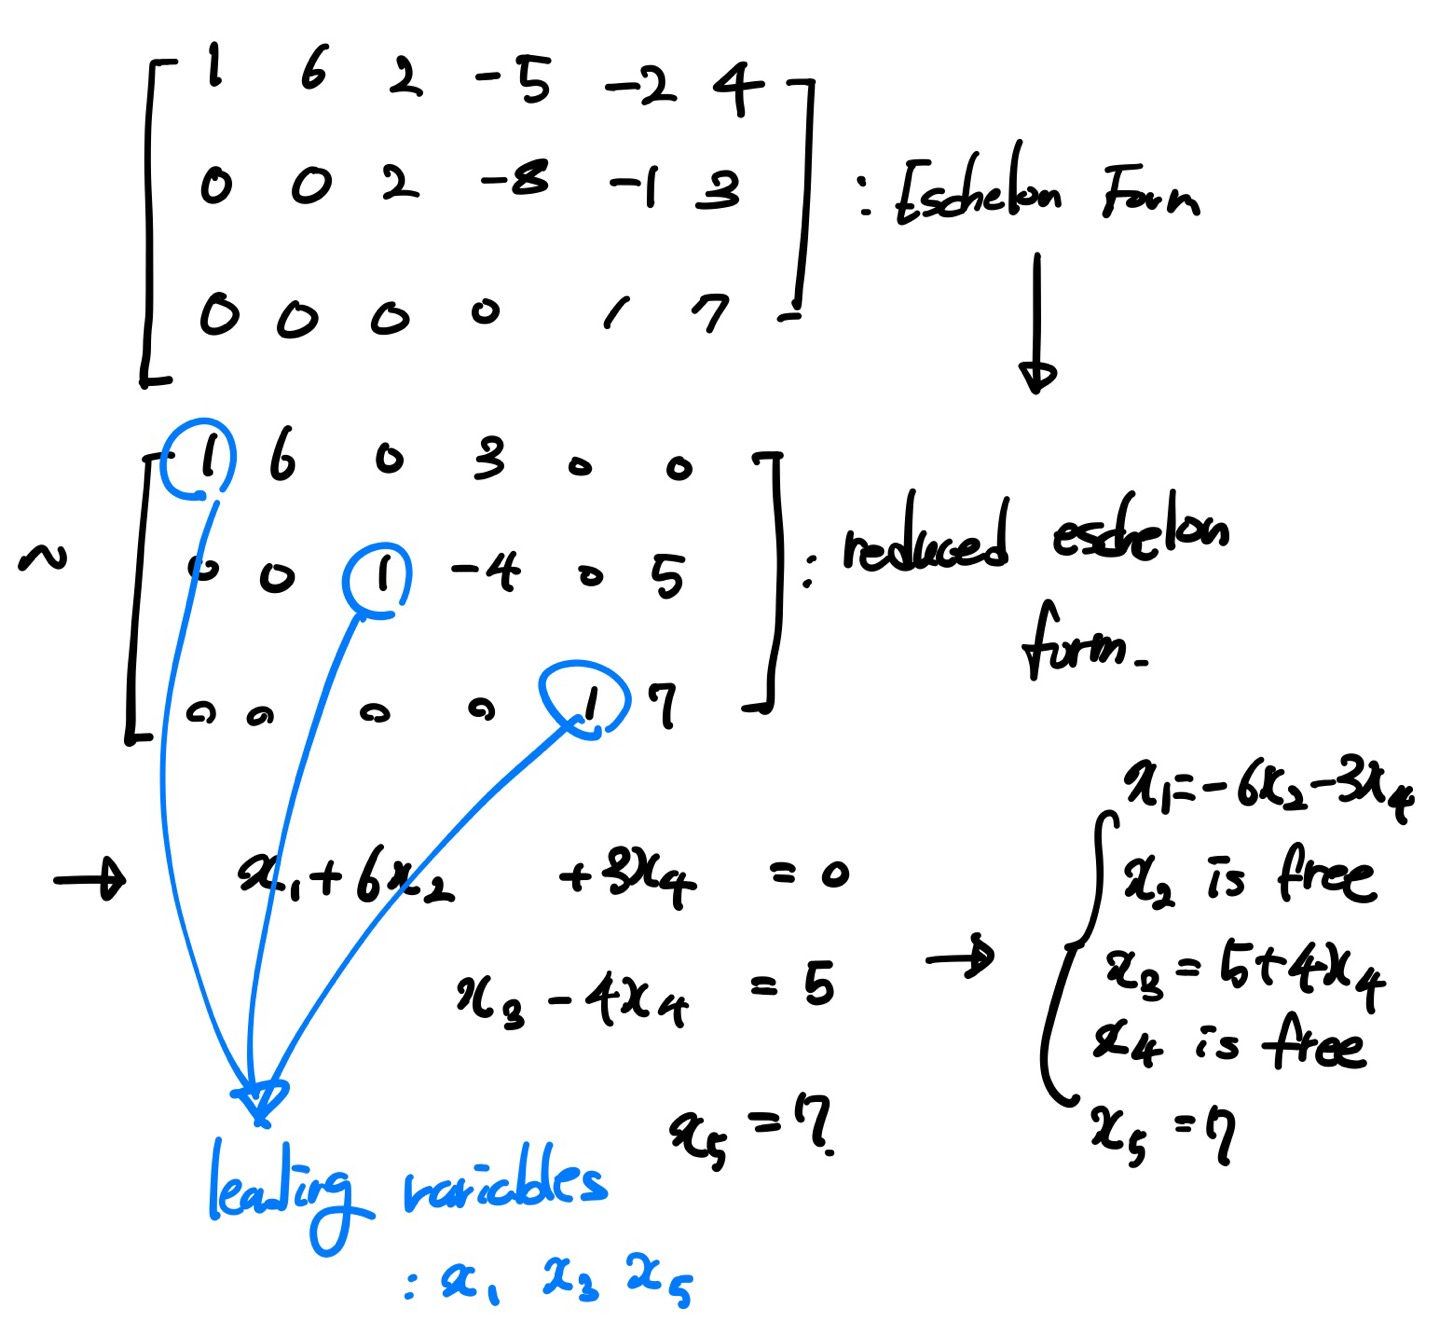 1 6 2 -5 -2 4
0 0 2 -8 -1 3 : Eschelon Form
0 0 0 0 1 7
1 6 0 3 0 0
~ 0 0 1 -4 0 5 : reduced eschelon
form.
0 0 0 0 1 7
→ x₁+6x₂ +3x₄ = 0
x₃ - 4x₄ = 5
x₅ = 7.
→ x₁=-6x₂-3x₄
x₂ is free
x₃ = 5+4x₄
x₄ is free
x₅ = 7
leading variables
: x₁ x₃ x₅